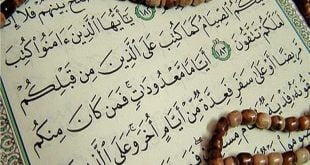 بَيْنَهُمْ فَلَا
يَٰٓأَيُّهَا ٱلَّذِينَ ءَامَنُوا۟ كُتِبَ
ٱلصِّيَامُ كَمَا كُتِبَ عَلَى ٱلَّذِينَ مِن قَبْلِكُمْ
تَتَّقُونَ ١٨٣ أَيَّامًا مَّعْدُودَٰتٍ فَمَن كَانَ مِنكُم
مَّرِيضًا أَوْ عَلَىٰ سَفَرٍ فَعِدَّةٌ مِّنْ أَيَّامٍ أُخَرَ وَعَلَى ٱلَّذِينَ